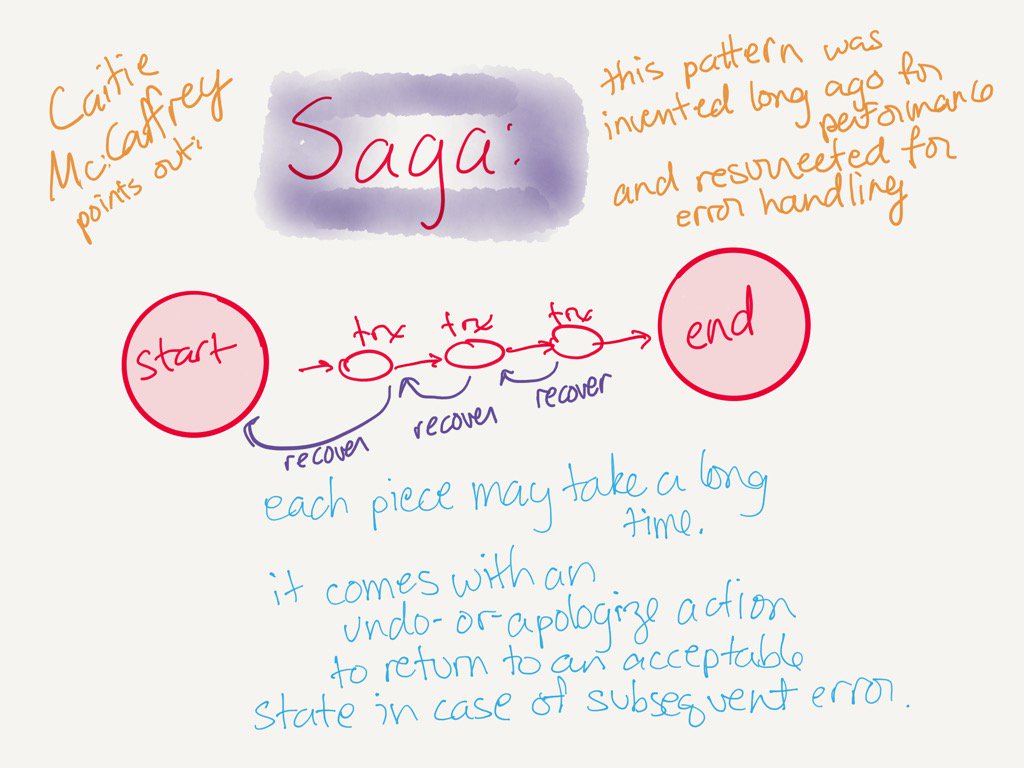 Caitie
McCaffrey
points out:
Saga:
this pattern was
invented long ago for
performance
and resurrected for
error handling
start
trx
trx
trx
end
recover
recover
recover
each piece may take a long
time.
it comes with an
undo-or-apologize action
to return to an acceptable
state in case of subsequent error.